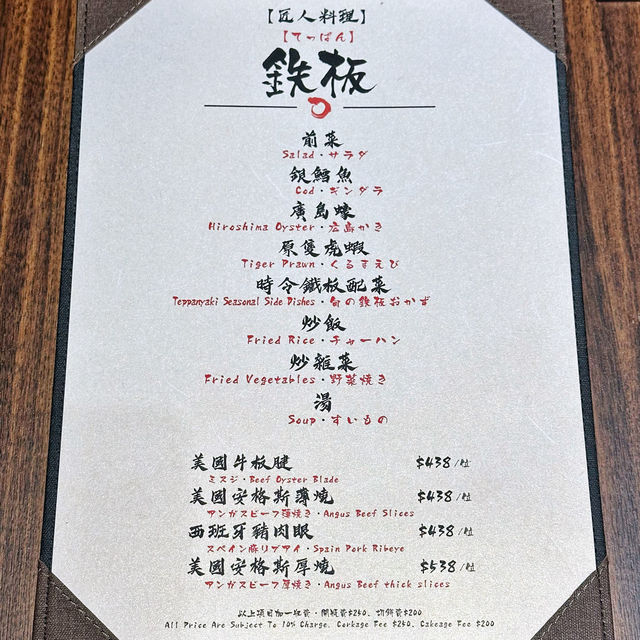 【匠人料理】
【てっぱん】
鉄板
前菜
Salad・サラダ
銀鱈魚
Cod・ギンダラ
廣島蠔
Hiroshima Oyster・広島かき
原隻虎蝦
Tiger Prawn・くるまえび
時令鐵板配菜
Teppanyaki Seasonal Side Dishes・旬の鉄板おかず
炒飯
Fried Rice・チャーハン
炒雜菜
Fried Vegetables・野菜焼き
湯
Soup・すいもの
美國牛板腱 $438/位
ミスジ・Beef Oyster Blade
美國安格斯薄燒 $438/位
アンガスビーフ薄焼き・Angus Beef Slices
西班牙豬肉眼 $438/位
スペイン豚リブアイ・Spain Pork Ribeye
美國安格斯厚燒 $538/位
アンガスビーフ厚焼き・Angus Beef thick slices
以上項目加一服費・開瓶費$240、切餅費$200
All Price Are Subject To 10% Charge. Corkage Fee $240. Cakeage Fee $200